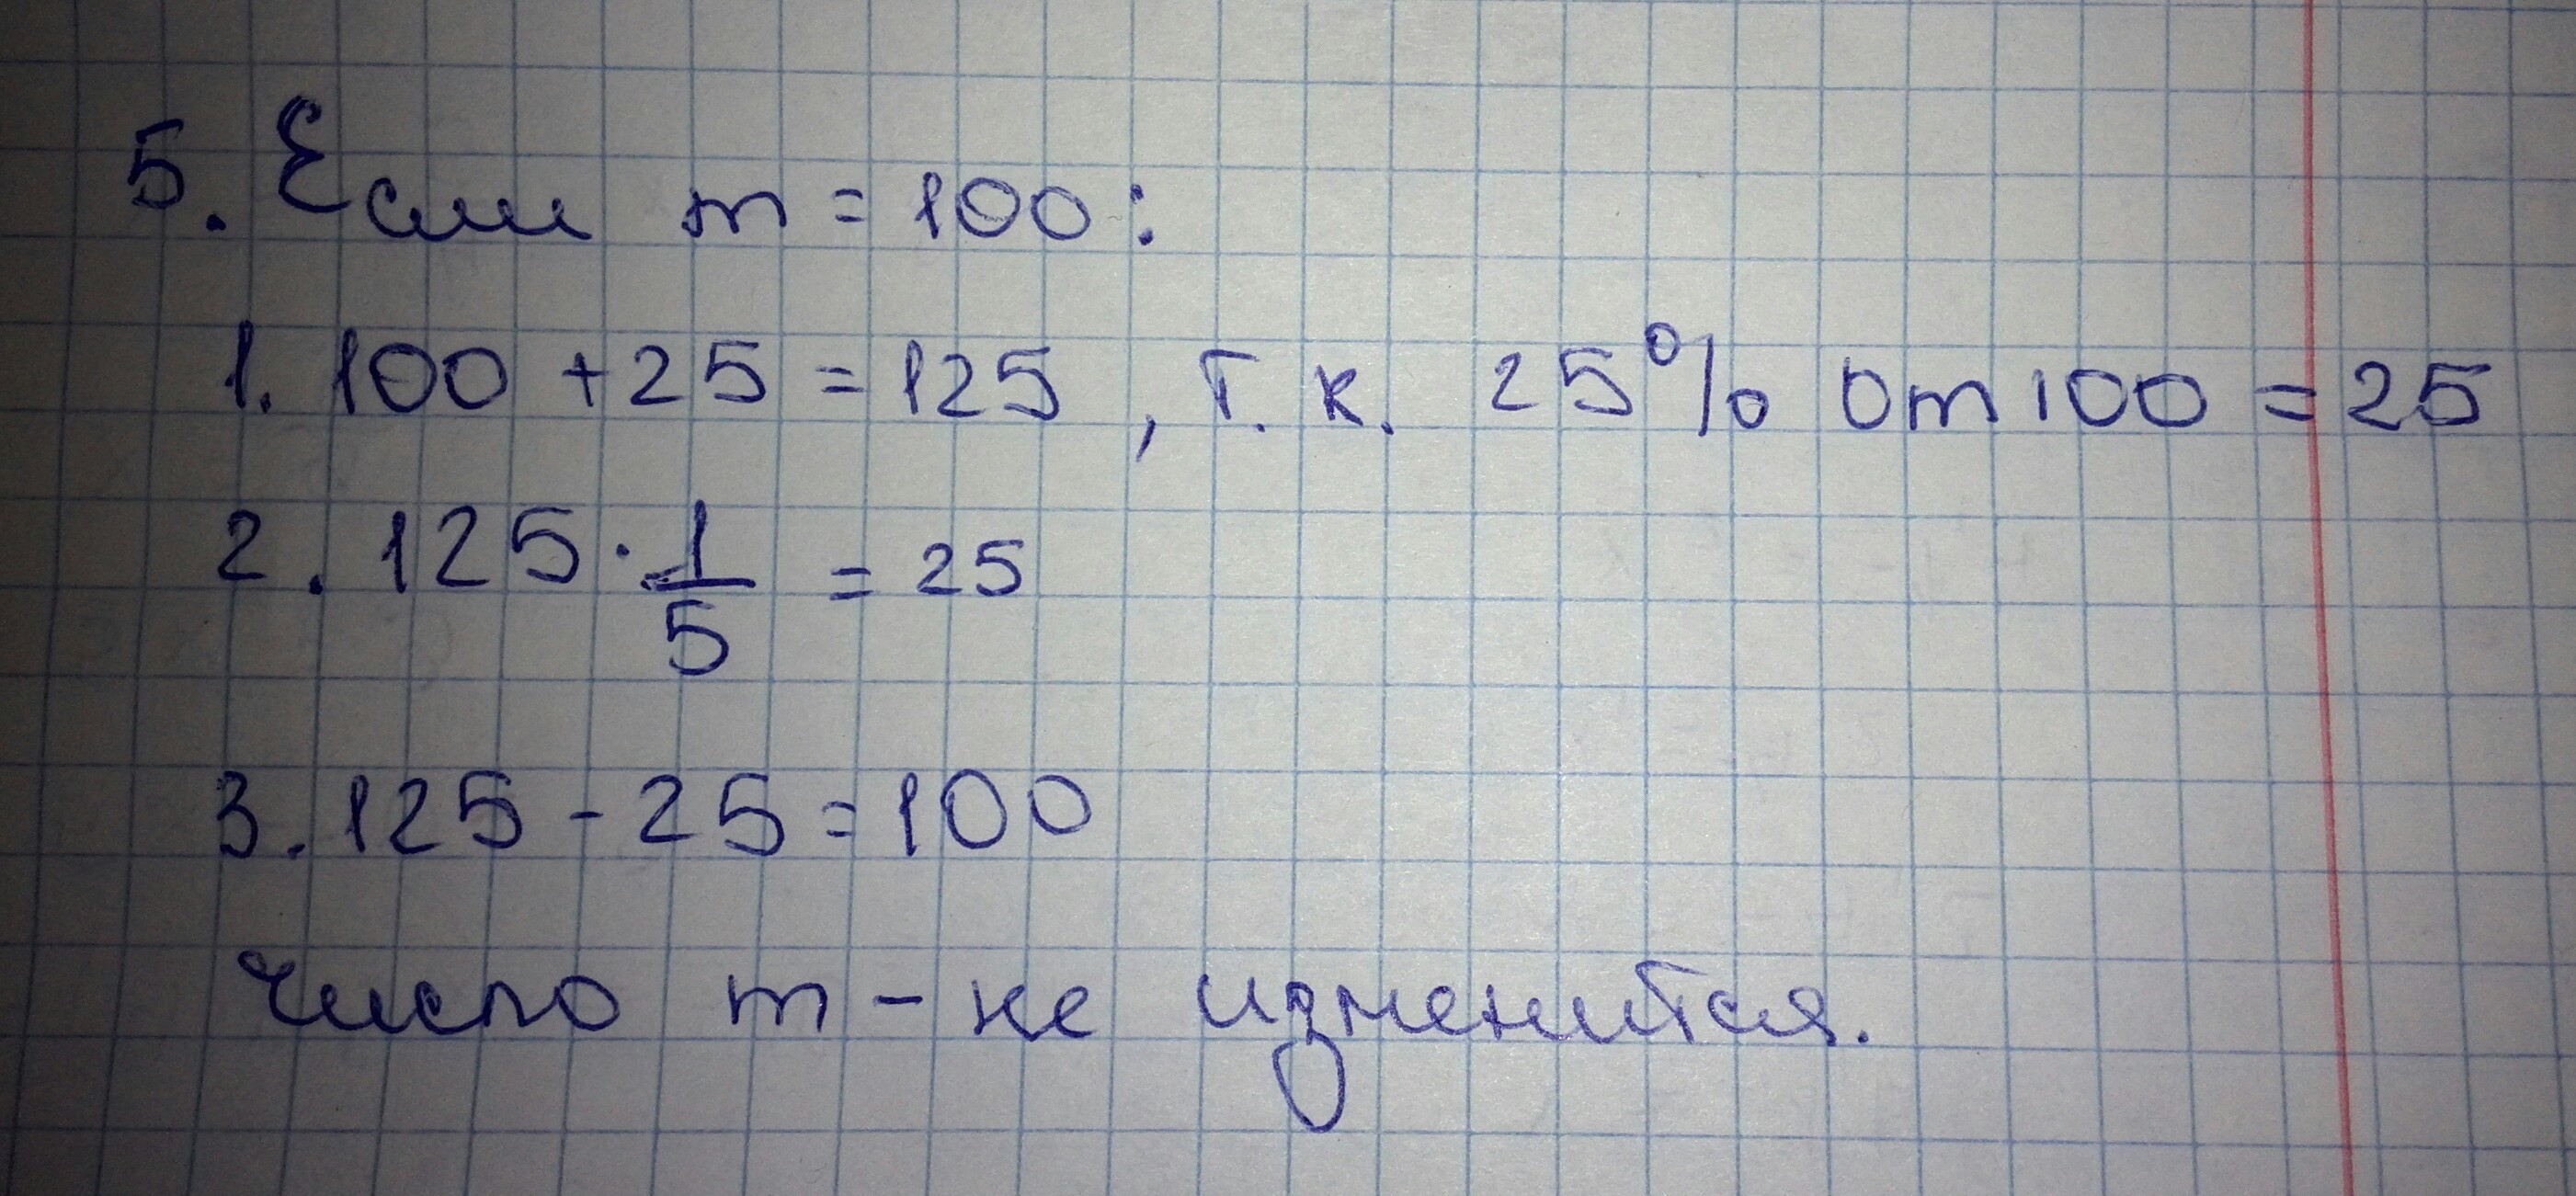 5. Если m = 100:
1. 100 + 25 = 125, т. к. 25% от 100 = 25
2. 125 · 1/5 = 25
3. 125 - 25 = 100
Число m - не изменится.